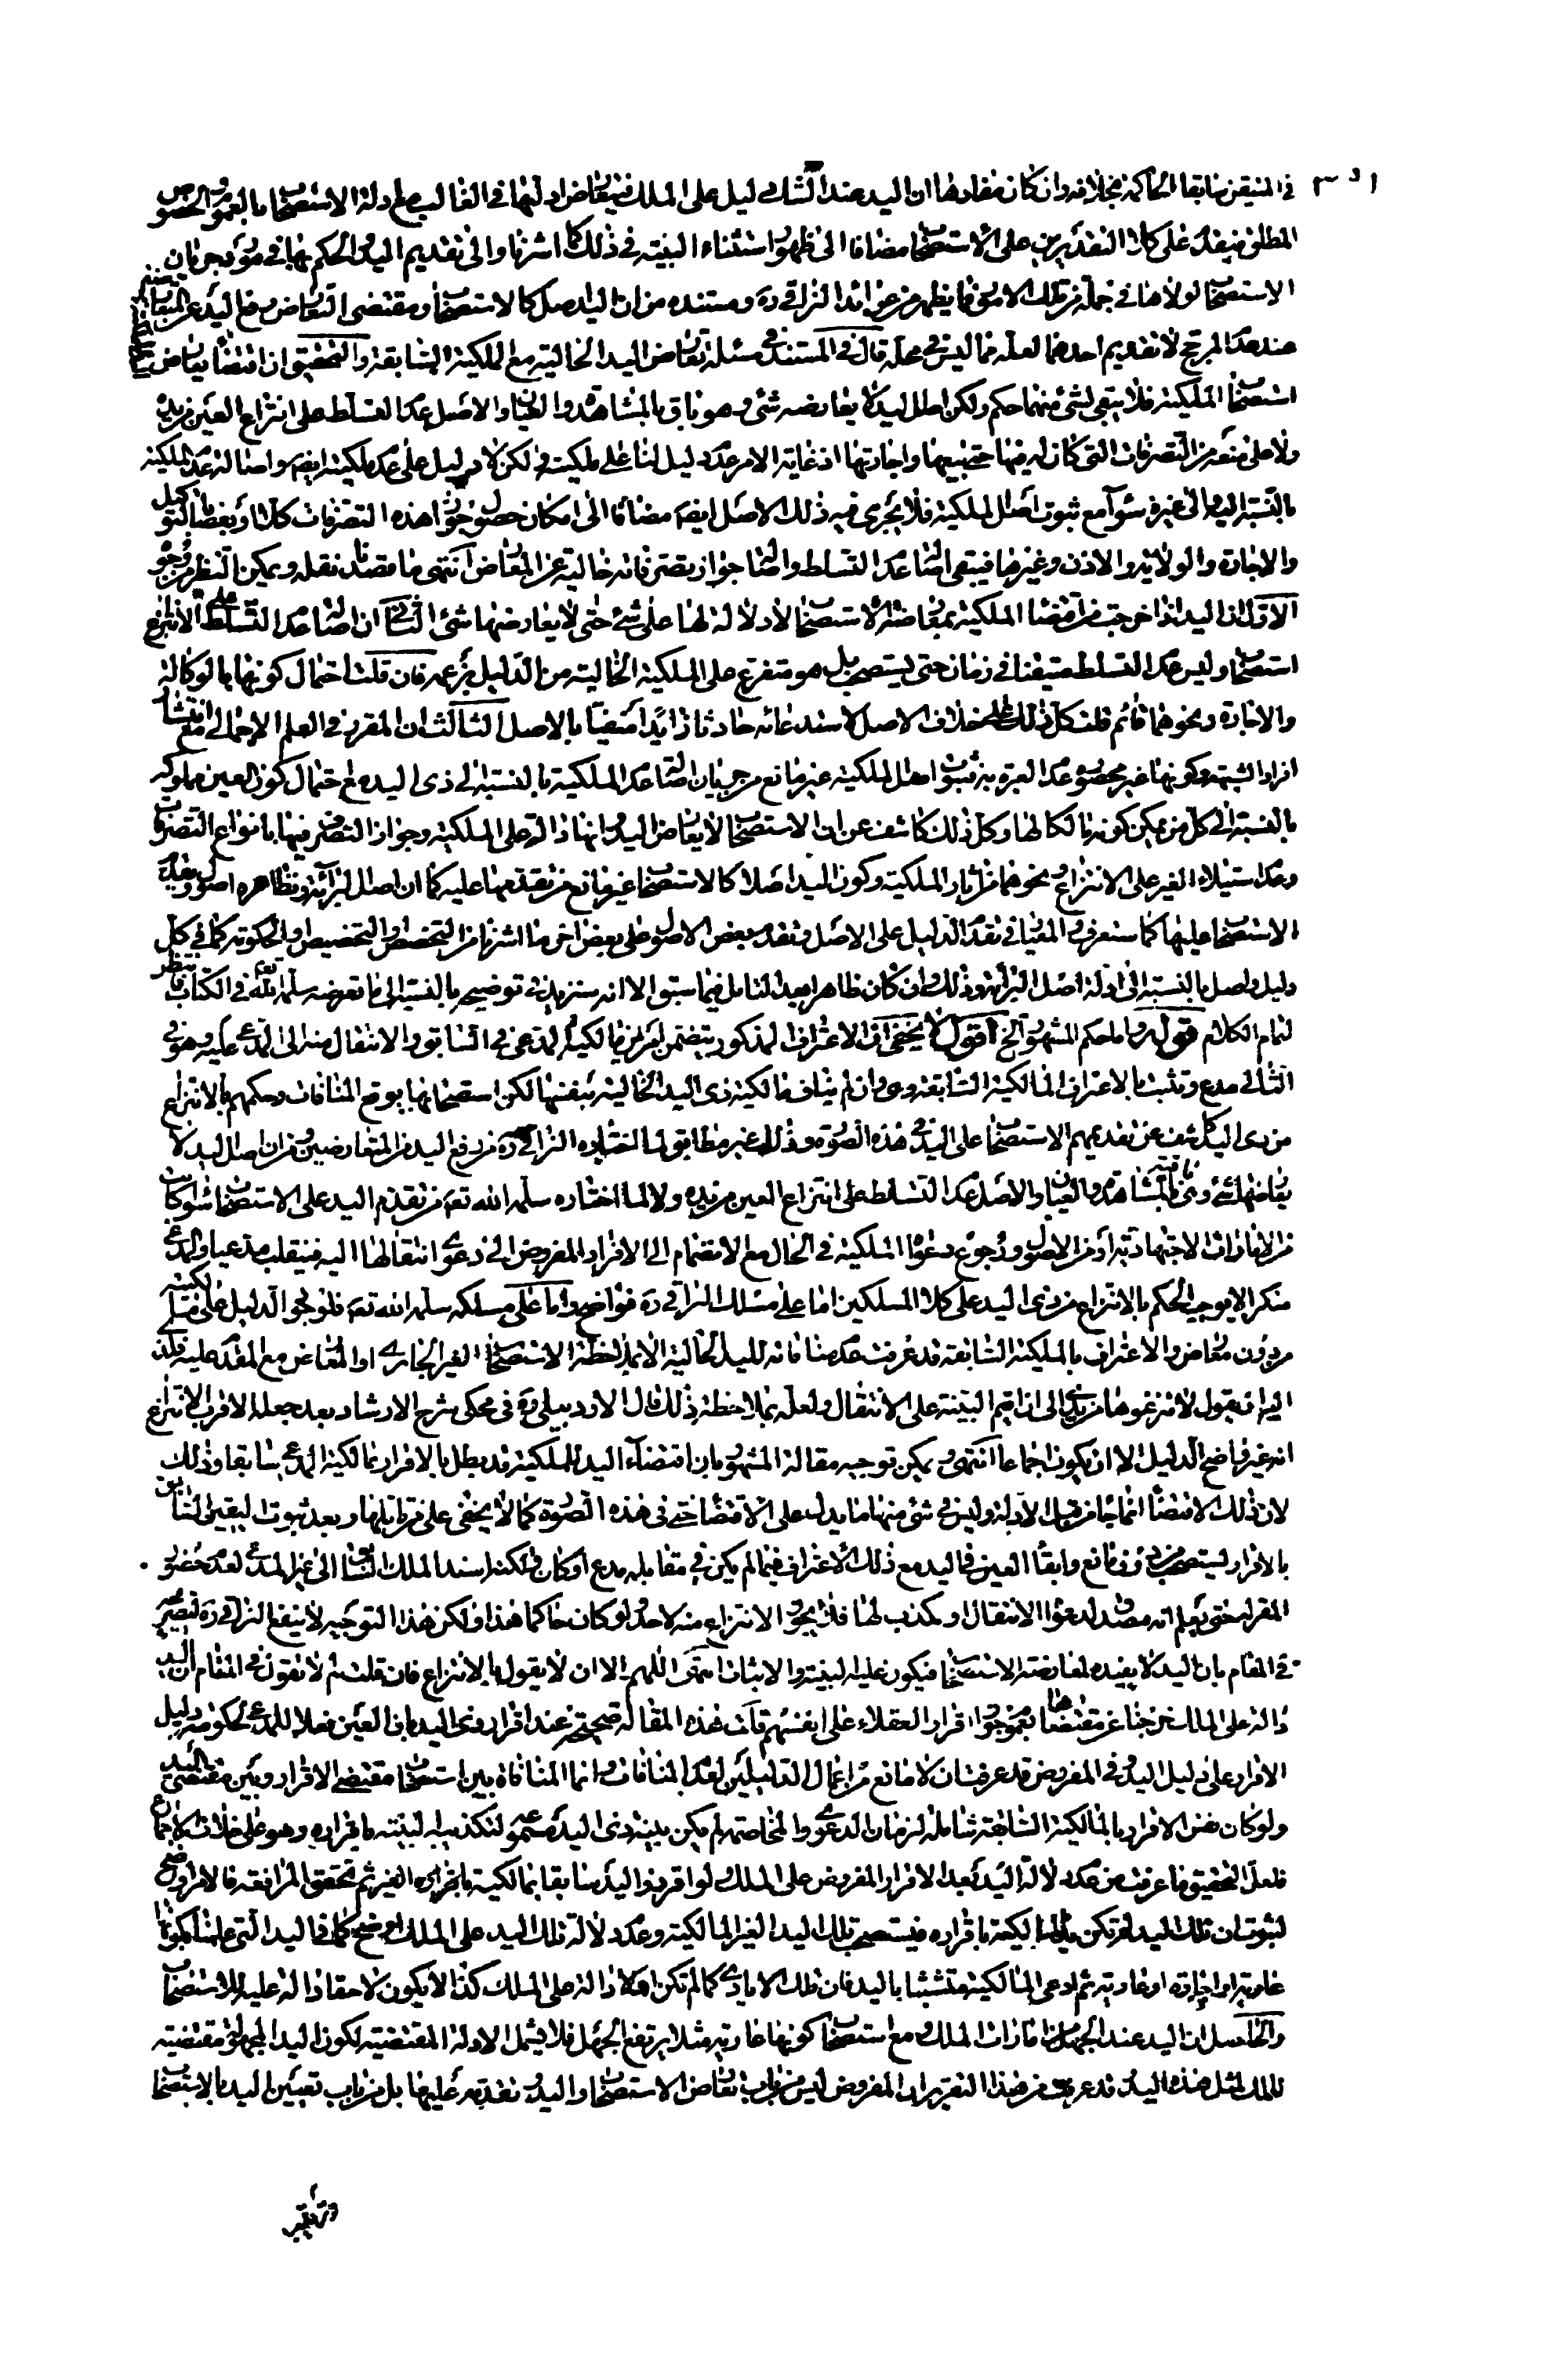 في المتيقن سابقا الحاكمة بخلافه وان كان مفادها ان اليد عند الشك دليل على الملك فيتعارض ادلتها في الغالب مع ادلة الاستصحاب بالعموم والخصوص
المطلق فيقدم على كلا التقديرين على الاستصحاب مضافا الى ظهور استثناء البينة في ذلك كما اشرنا والى تقديم اليد والحكم بها في مورد جريان
الاستصحاب لولاها في جملة من تلك الامور فما يظهر من عوائد النراقي ره ومستنده من ان اليد اصل كالاستصحاب ومقتضى التعارض رفع اليد عن المتعارضين
عند عدم المرجح لا تقديم احدهما لعله مما ليس في محله قال في المستند في مسئلة تعارض اليد الحالية مع الملكية السابقة والتحقيق ان اقتضاءها يعارض
استصحاب الملكية فلا يبقى لشئ منهما حكم ولكن اصل اليد لا يعارضه شئ وهو باق بالمشاهدة والعيان والاصل عدم التسلط على انتزاع العين من يده
ولا على منعه من التصرفات التي كان له فيها حتى بيعها واجارتها اذ غاية الامر عدم دليل لنا على ملكيته ولكن لا دليل على عدم ملكيته ايضا واصالة عدم الملكية
بالنسبة اليه والى غيره سواء مع ثبوت اصل الملكية فلا يجري فيه ذلك الاصل ايضا مضافا الى امكان حصول جواز هذه التصرفات كلا او بعضا بالتوكيل
والاجارة والولاية والاذن وغيرها فيبقى اصالة عدم التسلط واصالة جواز تصرفاته خالية عن المعارض انتهى ما قصدنا نقله ويمكن النظر من وجوه
الاول ان اليد اذا خرجت من اقتضاء الملكية بمعارضة الاستصحاب لا دلالة لها على شئ حتى لا يعارضها شئ الثاني ان اصالة عدم التسلط على الانتزاع
استصحاب وليس عدم التسلط متيقنا في زمان حتى يستصحب بل هو متفرع على الملكية الحالية من الدليل بزعمه فان قلت احتمال كونها بالوكالة
والاجارة ونحوهما قائم قلت كل ذلك على خلاف الاصل لاستدعائه حادثا زائدا منفيا بالاصل الثالث ان المقرر في العلم الاجمالي مع انتشار
افراد الشبهة وكونها غير محصورة عدم العبرة به فثبوت اصل الملكية غير مانع من جريان اصالة عدم الملكية بالنسبة الى ذي اليد مع احتمال كون العين مملوكة
بالنسبة الى كل من يمكن كونه مالكا لها وكل ذلك كاشف عن ان الاستصحاب لا يعارض اليد وانها دالة على الملكية وجواز التصرف فيها بانواع التصرفات
وعدم استيلاء الغير على الانتزاع ونحوهما من اثار الملكية وكون اليد اصلا كالاستصحاب غير مانع من تقديمها عليه كما ان اصل البرائة ونظائره اصول ويقدم
الاستصحاب عليها كما ستعرف والمقياس في تقدم الدليل على الاصل وتقدم بعض الاصول على بعض اخر ما اشرنا من التخصص او التخصيص او الحكومة كما في كل
دليل واصل بالنسبة الى ادلة اصل البرائة وذلك وان كان ظاهرا بعد التامل فيما سبق الا انه سنزيد في توضيحه بالنسبة الى ما تعرضه سلمه الله تعالى في الكتاب فانتظر
لتمام الكلام قوله واما حكم المشهور الخ اقول لا يخفى ان الاعتراف المذكور يتضمن امرين مالكية المدعي في السابق والانتقال منه الى المدعى عليه وهو في
الثاني مدع وتثبت بالاعتراف المالكية السابقة وهي وان لم يناف مالكية ذي اليد الحالية بنفسها لكن استصحابها يوقع المنافات وحكمهم بالانتزاع
من ذي اليد كاشف عن تقديمهم الاستصحاب على اليد في هذه الصورة وذلك غير مطابق لما اختاره النراقي ره من رفع اليد من المتعارضين ومن ان اصل اليد لا
يعارضها شئ وهي باقية بالمشاهدة والعيان والاصل عدم التسلط على انتزاع العين من يده ولا لما اختاره سلمه الله تعالى من تقديم اليد على الاستصحاب سواء كانت
من الامارات الاجتهادية او من الاصول ورجوع دعوى الملكية في الحال مع الانضمام الى الاقرار المفروض الى دعوى انتقالها اليه فينقلب مدعيا والمدعي
منكرا لا يوجب الحكم بالانتزاع من ذي اليد على كلا المسلكين اما على مسلك النراقي ره فواضح واما على مسلكه سلمه الله تعالى فلوجود الدليل على ملكيته
من دون معارض والاعتراف بالملكية السابقة قد عرفت عدم منافاته لليد الحالية الا بملاحظة الاستصحاب الغير الجاري او المعارض مع المقدم عليه فلذي
اليد ان يقول لا تنزعوها من يدي الى ان اقيم البينة على الانتقال ولعله بملاحظة ذلك قال الاردبيلي ره في محكي شرح الارشاد بعد جعله الاقرب الانتزاع
انه غير واضح الدليل الا ان يكون اجماعا انتهى ويمكن توجيه مقالة المشهور بان اقتضاء اليد للملكية قد بطل بالاقرار بمالكية المدعي سابقا وذلك
لان ذلك الاقتضاء انما جاء من قبل الادلة وليس في شئ منها ما يدل على الاقتضاء حتى في هذه الصورة كما لا يخفى على من راجعها وبعد ثبوت اليقين السابق
بالاقرار يستصحب من دون مانع وابقاء العين في اليد مع ذلك الاعتراف فيما لم يكن في مقابله مدع او كان ولكنه اسند الملك السابق الى غير المدعي لعدم حضور
المقر له حتى يعلم انه مصدق لدعوى الانتقال او مكذب لها فلا يجوز الانتزاع منه لاحد ولو كان حاكما هذا ولكن هذا التوجيه لا ينفع النراقي ره لتصريحه
في المقام بان اليد لا يفيده لمعارضة الاستصحاب فيكون عليه البينة والاثبات انتهى اللهم الا ان لا يقول بالانتزاع فان قلت لم لا تقول في المقام ان اليد
دالة على الملك خرجنا عن مقتضاها بعموم جواز اقرار العقلاء على انفسهم قلت هذه المقالة صحيحة عند اقرار ذي اليد بان العين فعلا للمدعي لحكومة دليل
الاقرار على دليل اليد وفي المفروض قد عرفت ان لا مانع من اعمال الدليلين لعدم المنافات وانما المنافاة بين استصحاب مقتضى الاقرار وبين مقتضى اليد
ولو كان نفس الاقرار بالمالكية السابقة شاملة لزمان الدعوى والمخاصمة لم يكن بينة ذي اليد مسموعة لتكذيبه لبينته باقراره وهو على خلاف الاجماع
فلعل التحقيق ما عرفت من عدم دلالة اليد بعد الاقرار المفروض على الملك ولو اقر ذو اليد سابقا بمالكية ما بيده الغير ثم تحقق المرافعة فالامر اوضح
لثبوت ان تلك اليد لم تكن يد مالكية باقراره فيستصحب تلك اليد الغير المالكية وعدم دلالة تلك اليد على الملك اوضح كما في اليد التي علمنا بكونها
عارية او اجارة او غادية ثم ادعى المالكية متشبثا باليد فان تلك الايادي كما لم تكن اولا دالة على الملك كذا لا يكون لاحقا دالة عليه للاستصحاب
والحاصل ان اليد عند الجهل امارات الملك ومع استصحاب كونها عارية مثلا يرتفع الجهل فلا يشمل الادلة المقتضية لكون اليد المجهولة مقتضية
للملك لمثل هذه اليد وقد عرفت من هذا التقرير ان المفروض ليس من باب تعارض الاستصحاب واليد وتقديمه عليها بل من باب تعيين اليد بالاستصحاب